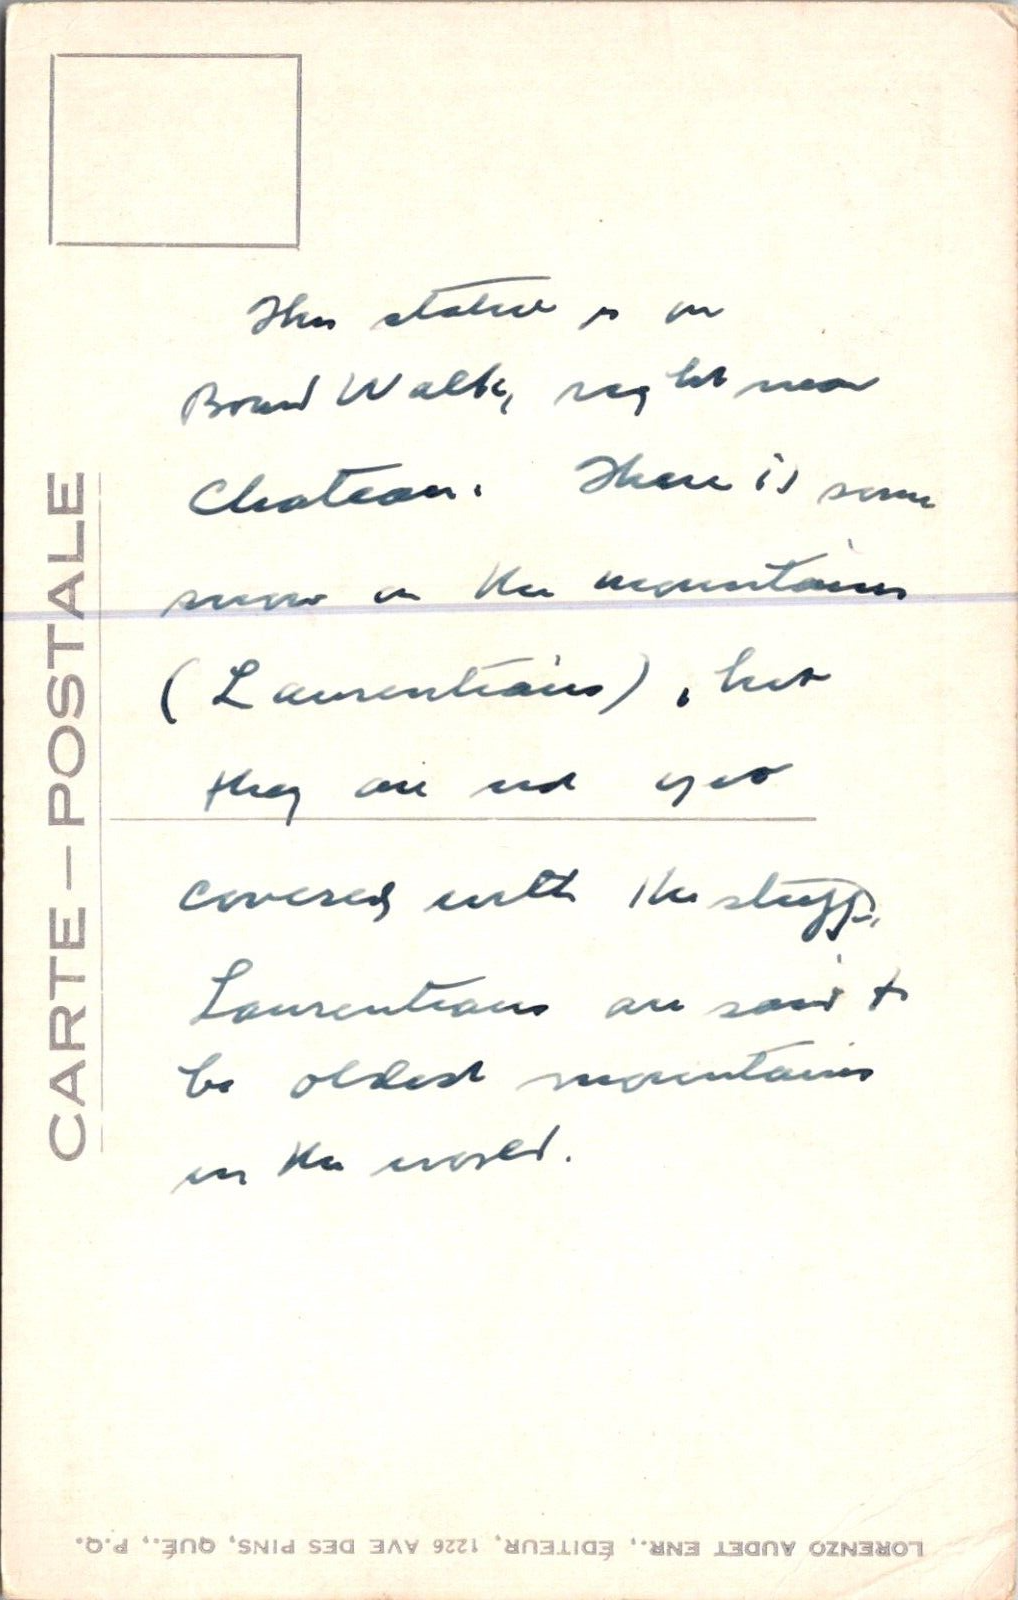 This statue is on
Board Walk, right near
Chateau. There is some
snow on the mountains
(Laurentians), but
they are not yet
covered with the stuff.
Laurentians are said to
be oldest mountains
in the world.
CARTE—POSTALE
LORENZO AUDET ENR., ÉDITEUR, 1226 AVE DES PINS, QUÉ., P.Q.